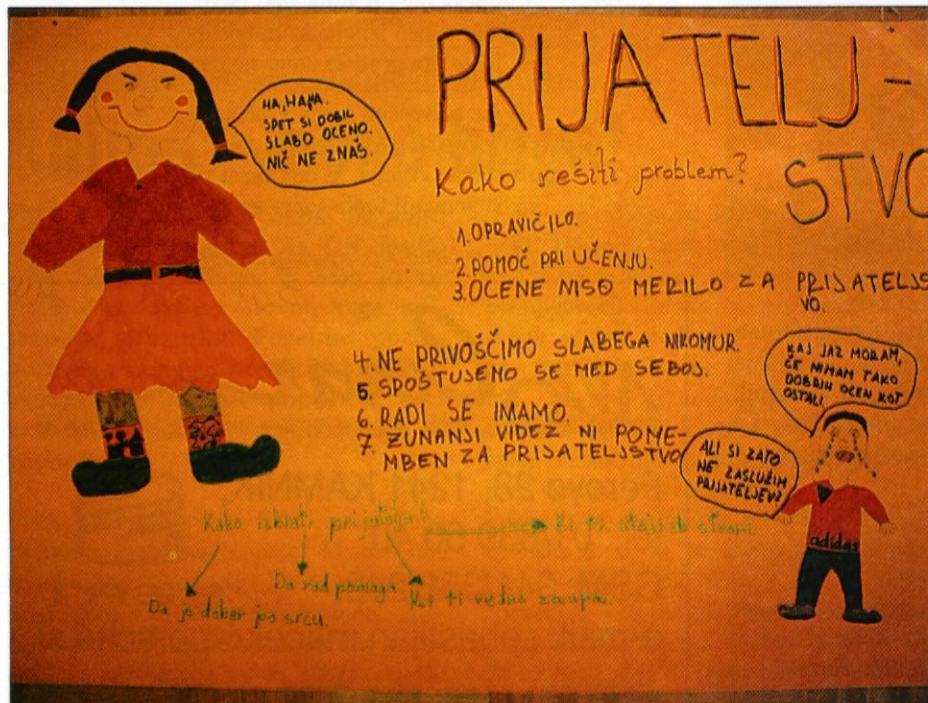 HA, HAHA.
SPET SI DOBIL
SLABO OCENO.
NIČ NE ZNAŠ.
PRIJATELJ-
STVO
Kako rešiti problem?
1. OPRAVIČILO.
2. POMOČ PRI UČENJU.
3. OCENE NISO MERILO ZA PRIJATELJS
VO.
4. NE PRIVOŠČIMO SLABEGA NIKOMUR.
5. SPOŠTUJEMO SE MED SEBOJ.
6. RADI SE IMAMO.
7. ZUNANJI VIDEZ NI POME-
MBEN ZA PRIJATELJSTVO
KAJ JAZ MORAM,
ČE NIMAM TAKO
DOBRIH OCEN KOT
OSTALI.
ALI SI ZATO
NE ZASLUŽIM
PRIJATELJEV?
adidas
Kako izbrati prijatelja?
Ki ti stoji ob strani.
Da rad pomaga.
Ki ti vedno zaupa.
Da je dober po srcu.